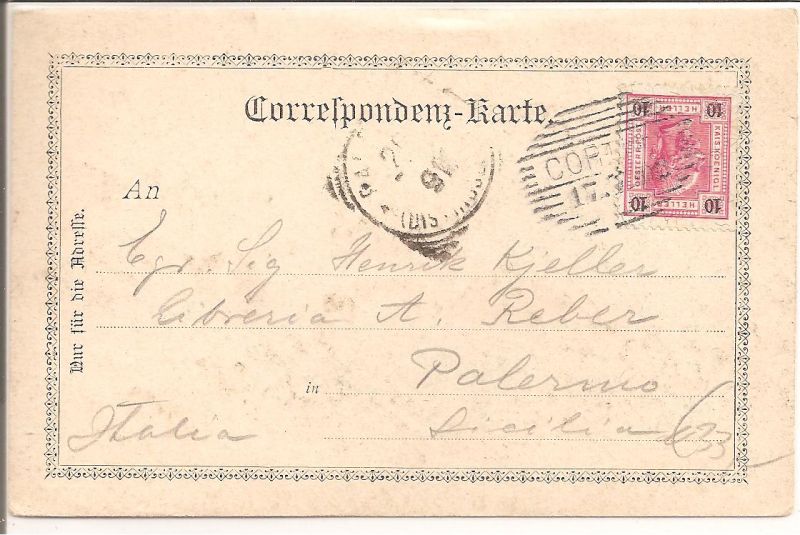 Correspondenz-Karte.
An
Egr. Sig Henrik Kjeller
Libreria A. Reber
in Palermo
Italia Sicilia
Nur für die Adresse.
10 HELLER 10
KAIS. KOENIGL.
OESTERR. POST
10 HELLER 10